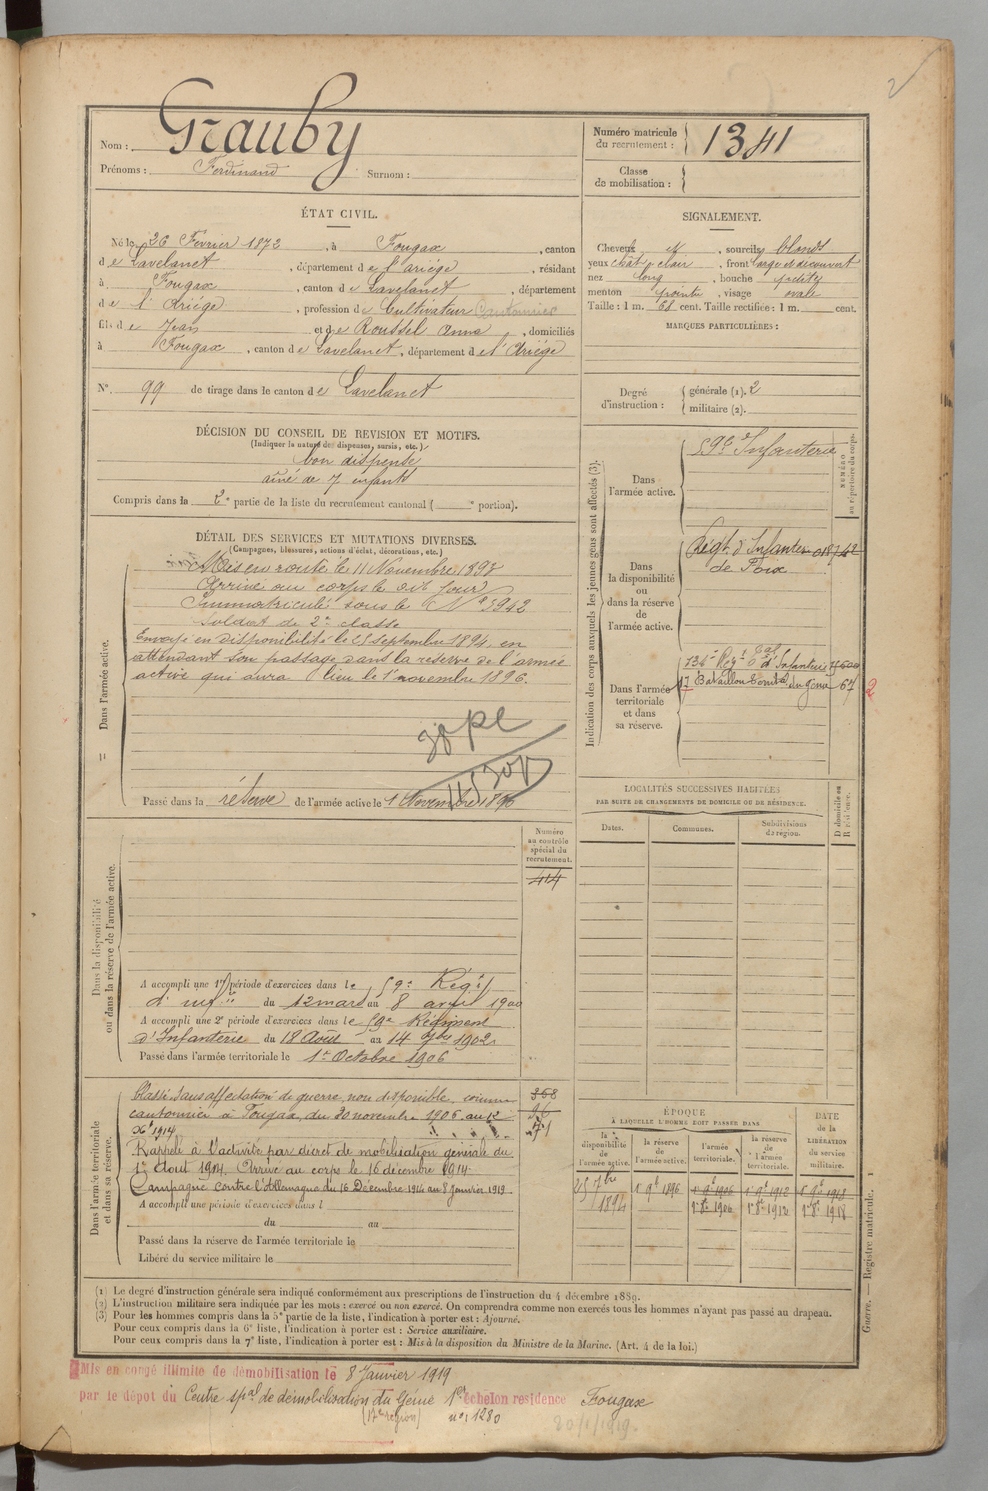 2
Nom : Grauby
Prénoms : Ferdinand Surnom :
Numéro matricule du recrutement : 1341
Classe de mobilisation :
ÉTAT CIVIL.
Né le 26 Fevrier 1872, à Fougax, canton
de Lavelanet, département de l'ariége, résidant
à Fougax, canton de Lavelanet, département
de l'Ariége, profession de Cultivateur Cantonnier
fils de Jean et de Roussel Anna, domiciliés
à Fougax, canton de Lavelanet, département de l'Ariége
N° 99 de tirage dans le canton de Lavelanet
SIGNALEMENT.
Cheveux et, sourcils blonds
yeux chât. clair, front large et découvert
nez long, bouche petite
menton pointu, visage ovale
Taille : 1 m. 68 cent. Taille rectifiée : 1 m. cent.
MARQUES PARTICULIÈRES :
Degré d'instruction : générale (1). 2
militaire (2).
DÉCISION DU CONSEIL DE REVISION ET MOTIFS.
(Indiquer la nature des dispenses, sursis, etc.)
bon dispensé
ainé de 7 enfants
Compris dans la 2e partie de la liste du recrutement cantonal ( e portion).
DÉTAIL DES SERVICES ET MUTATIONS DIVERSES.
(Campagnes, blessures, actions d'éclat, décorations, etc.)
Dans l'armée active.
Mis en route le 11 Novembre 1893
Arrivé au corps le dit jour
Immatriculé sous le N° 3942
Soldat de 2e classe
Envoyé en disponibilité le 25 septembre 1894, en
attendant son passage dans la réserve de l'armée
active qui aura lieu le 1er novembre 1896.
Passé dans la réserve de l'armée active le 1 Novembre 1896
Indication des corps auxquels les jeunes gens sont affectés (3).
NUMÉRO au répertoire du corps.
Dans l'armée active.
59e Infanterie
Dans la disponibilité ou dans la réserve de l'armée active.
Régt d'Infanterie 018742
de Foix
Dans l'armée territoriale et dans sa réserve.
136e Régt tal d'Infanterie
17 Bataillon territ. du génie 67
2
LOCALITÉS SUCCESSIVES HABITÉES
PAR SUITE DE CHANGEMENTS DE DOMICILE OU DE RÉSIDENCE.
Dates. Communes. Subdivisions de région. D domicile ou R résidence.
Dans la disponibilité ou dans la réserve de l'armée active.
Numéro au contrôle spécial du recrutement.
414
A accompli une 1re période d'exercices dans le 59e Régt
d'inf.ie du 12 mars au 8 avril 1900
A accompli une 2e période d'exercices dans le 59e Régiment
d'Infanterie du 18 Août au 14 7bre 1902
Passé dans l'armée territoriale le 1er Octobre 1906
Dans l'armée territoriale et dans sa réserve.
Classé sans affectation de guerre, non disponible, comme
cantonnier à Fougax, du 30 novembre 1906 au 12
Xbre 1914
Rappelé à l'activité par décret de mobilisation générale du
1er Aout 1914. Arrivé au corps le 16 décembre 1914.
Campagne contre l'Allemagne du 16 Décembre 1914 au 8 Janvier 1919
A accompli une période d'exercices dans l
du au
Passé dans la réserve de l'armée territoriale le
Libéré du service militaire le
ÉPOQUE
À LAQUELLE L'HOMME DOIT PASSER DANS
la disponibilité de l'armée active. la réserve de l'armée active. l'armée territoriale. la réserve de l'armée territoriale. DATE de la LIBÉRATION du service militaire.
25 7bre 1894
1er 8bre 1906 1er 8bre 1912 1er 8bre 1918
(1) Le degré d'instruction générale sera indiqué conformément aux prescriptions de l'instruction du 4 décembre 1889.
(2) L'instruction militaire sera indiquée par les mots : exercé ou non exercé. On comprendra comme non exercés tous les hommes n'ayant pas passé au drapeau.
(3) Pour les hommes compris dans la 5e partie de la liste, l'indication à porter est : Ajourné.
Pour ceux compris dans la 6e liste, l'indication à porter est : Service auxiliaire.
Pour ceux compris dans la 7e liste, l'indication à porter est : Mis à la disposition du Ministre de la Marine. (Art. 4 de la loi.)
Guerre. — Registre matricule. 1
Mis en congé illimité de démobilisation le 8 Janvier 1919
par le dépôt du Centre spal de démobilisation du Génie 1er échelon résidence Fougax
(17e région) n° 1280
20/1/1919.